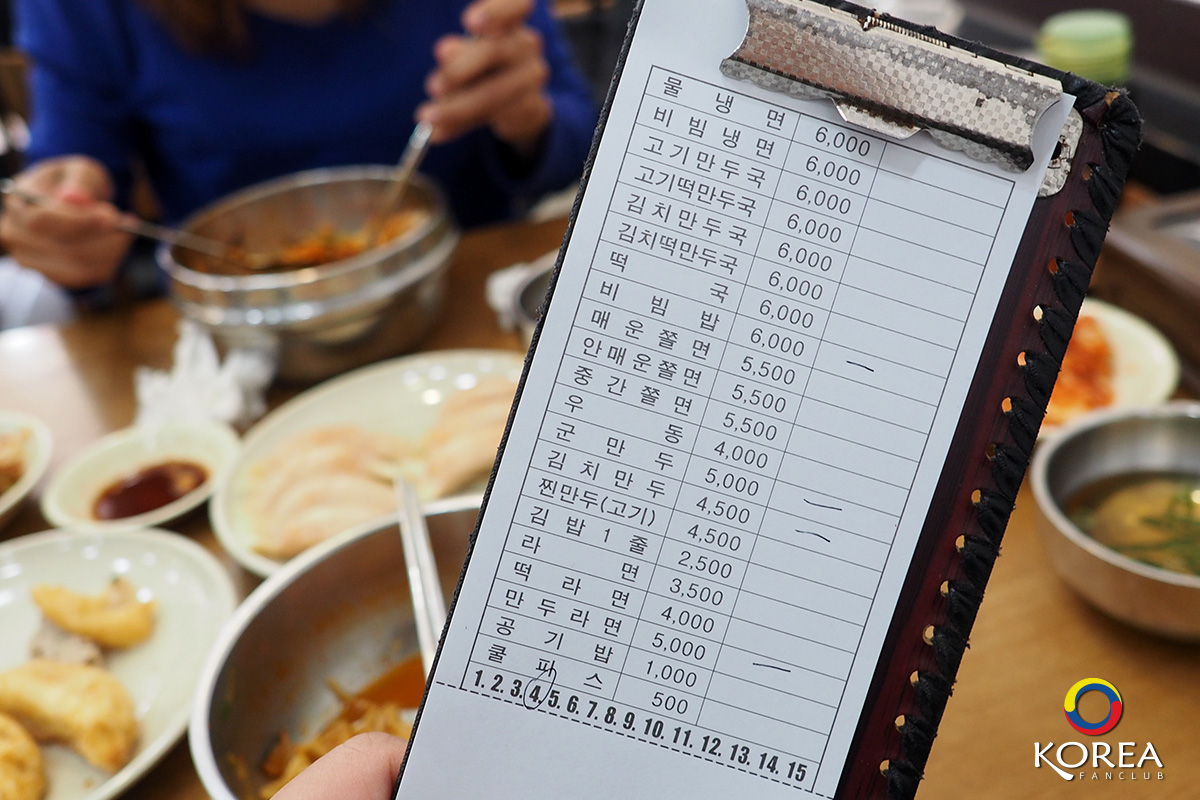 물 냉 면 6,000
비 빔 냉 면 6,000
고기만두국 6,000
고기떡만두국 6,000
김치만두국 6,000
김치떡만두국 6,000
떡 국 6,000
비 빔 밥 6,000
매 운 쫄 면 5,500 —
안매운쫄면 5,500
중 간 쫄 면 5,500
우 동 4,000
군 만 두 5,000 —
김 치 만 두 4,500 —
찐만두(고기) 4,500
김 밥 1 줄 2,500
라 면 3,500
떡 라 면 4,000
만 두 라 면 5,000 —
공 기 밥 1,000
쿨 피 스 500
1. 2. 3. 4. 5. 6. 7. 8. 9. 10. 11. 12. 13. 14. 15
KOREA
FANCLUB